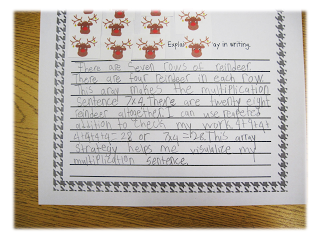 Explain ay in writing.
There are Seven rows of reindeer.
There are four reindeer in each row.
This array makes the multiplication
Sentence 7x4. There are twenty eight
reindeer altogether. I can use repeated
addition to check my work 4+4+4+
4+4+4+4=28 or 7x4=28. This array
strategy helps me visualize my
multiplication sentence.